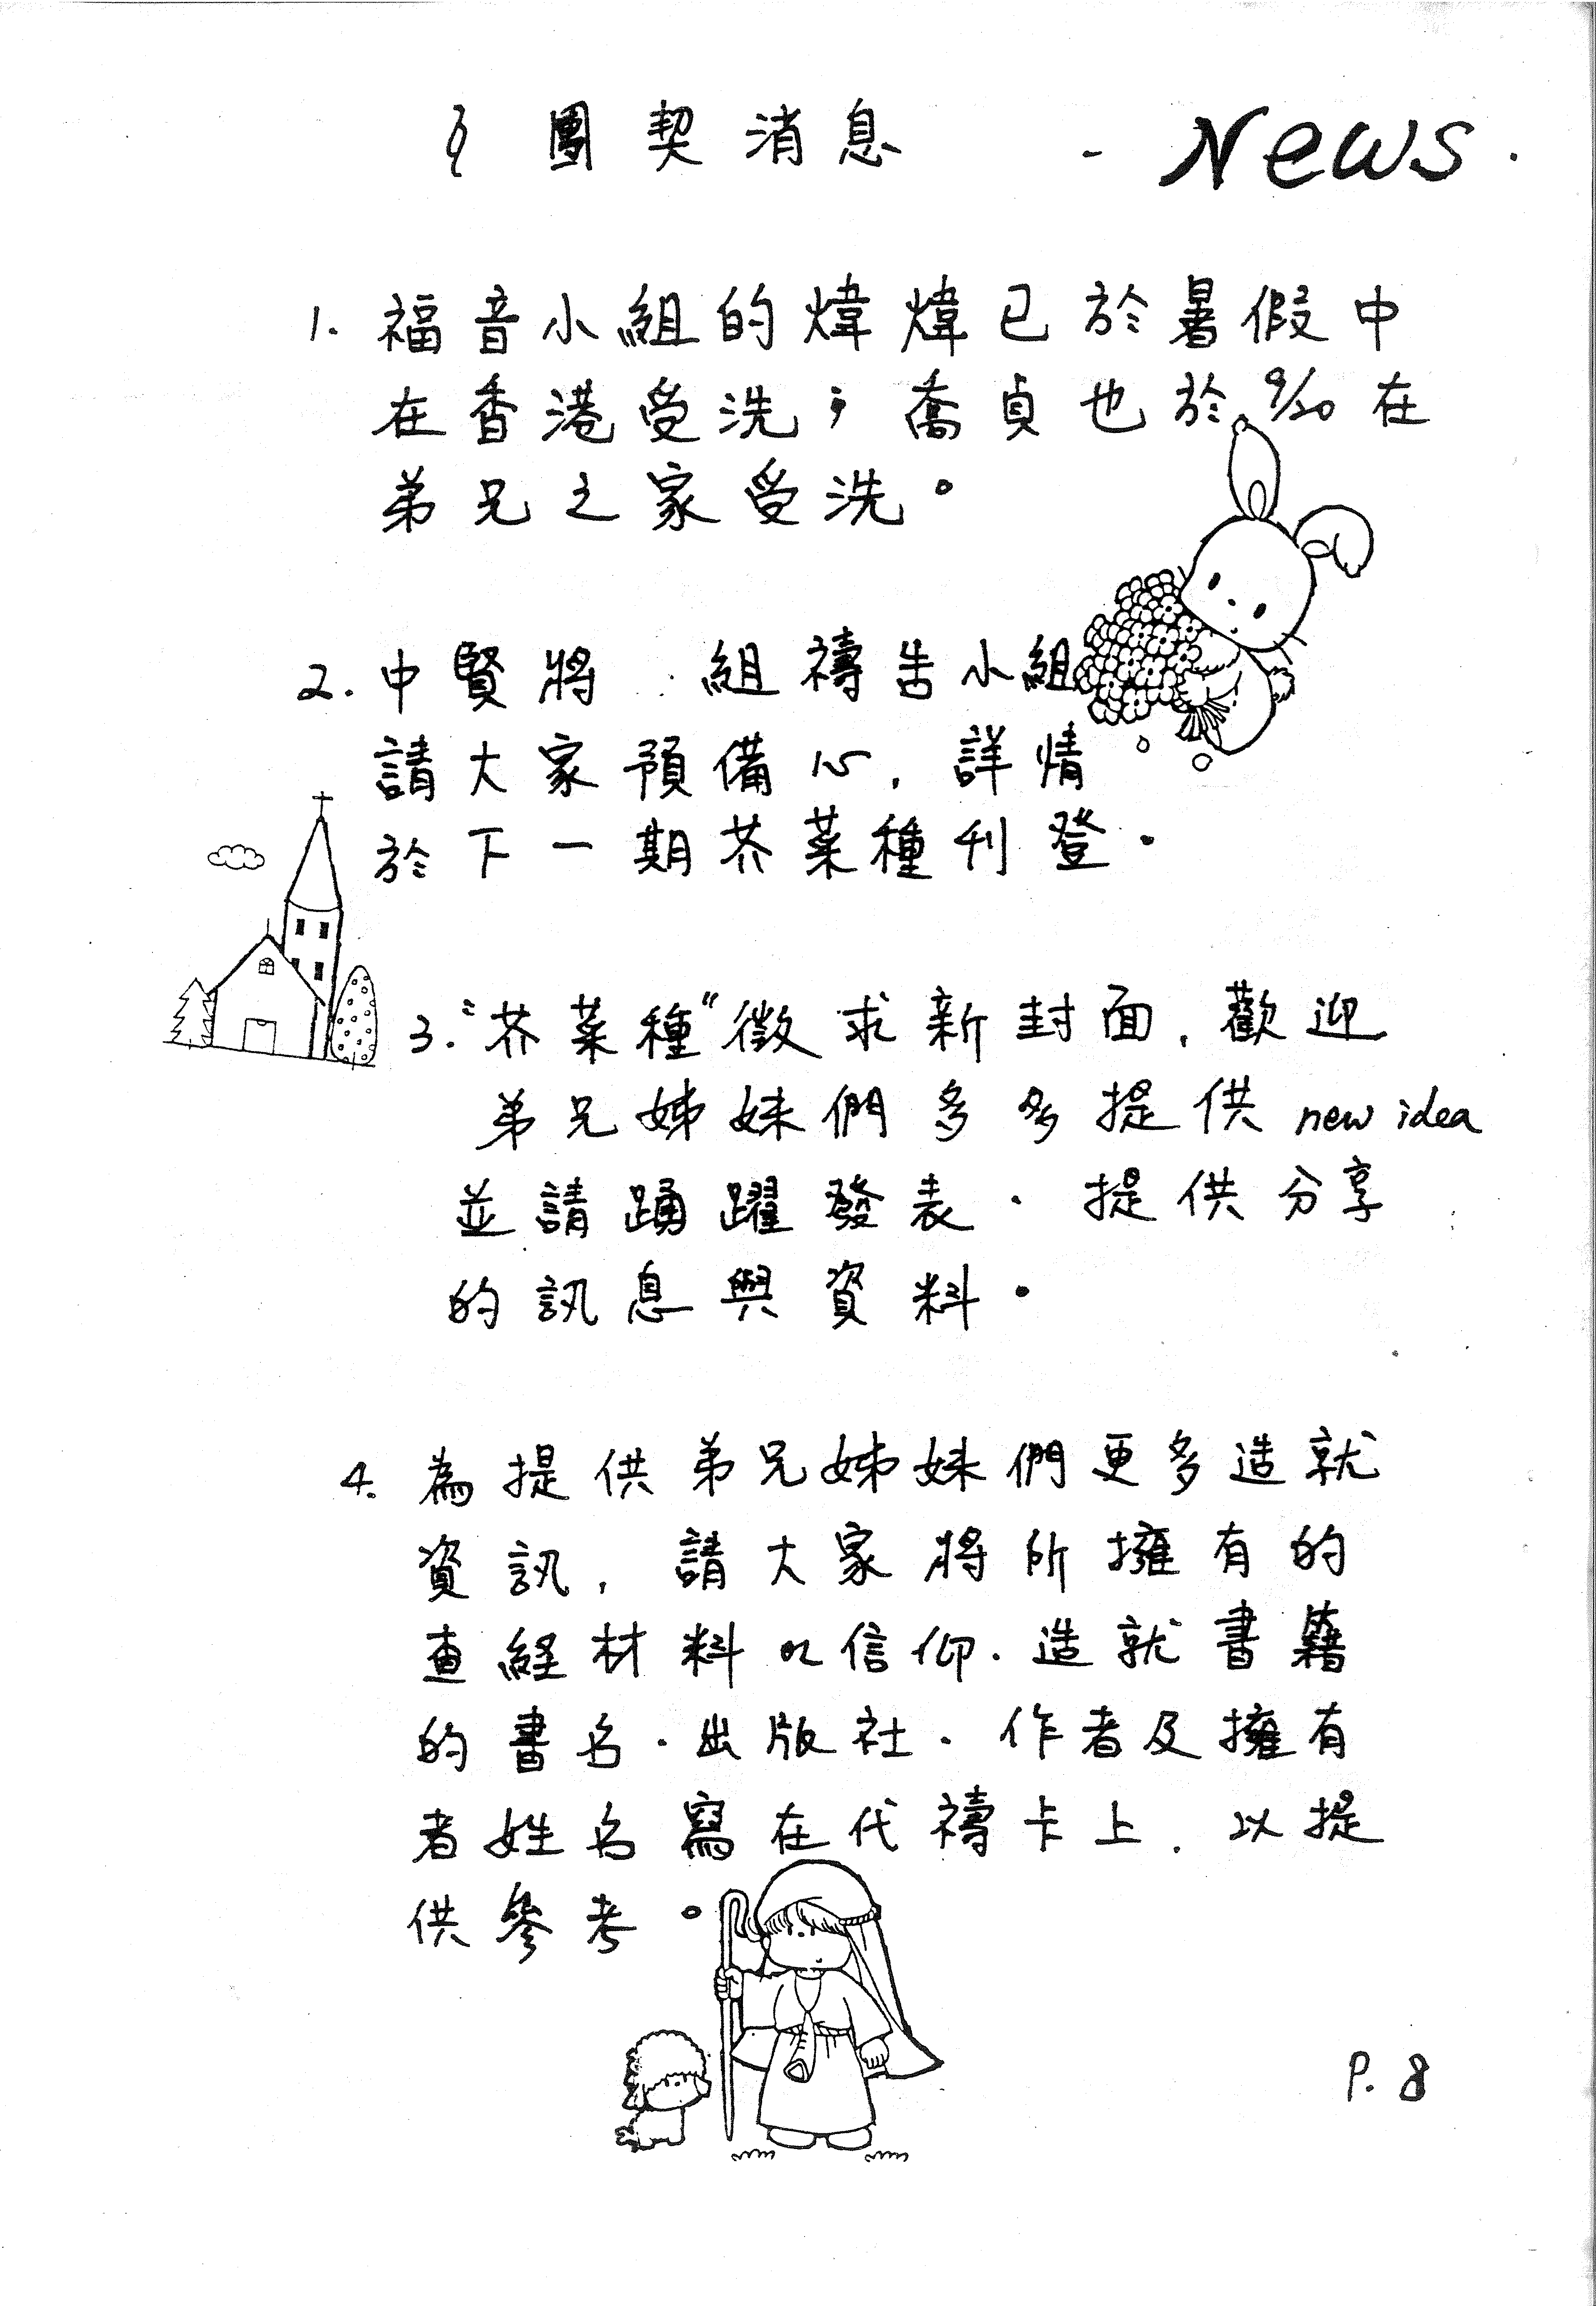 § 團契消息 - News.
1. 福音小組的煒煒已於暑假中
在香港受洗；喬貞也於9/20在
弟兄之家受洗。
2. 中賢將 組禱告小組
請大家預備心，詳情
於下一期芥菜種刊登．
3. "芥菜種"徵求新封面，歡迎
弟兄姊妹們多多提供 new idea
並請踴躍發表．提供分享
的訊息與資料．
4. 為提供弟兄姊妹們更多造就
資訊，請大家將所擁有的
查經材料以信仰．造就書籍
的書名．出版社．作者及擁有
者姓名寫在代禱卡上，以提
供參考。
P. 8